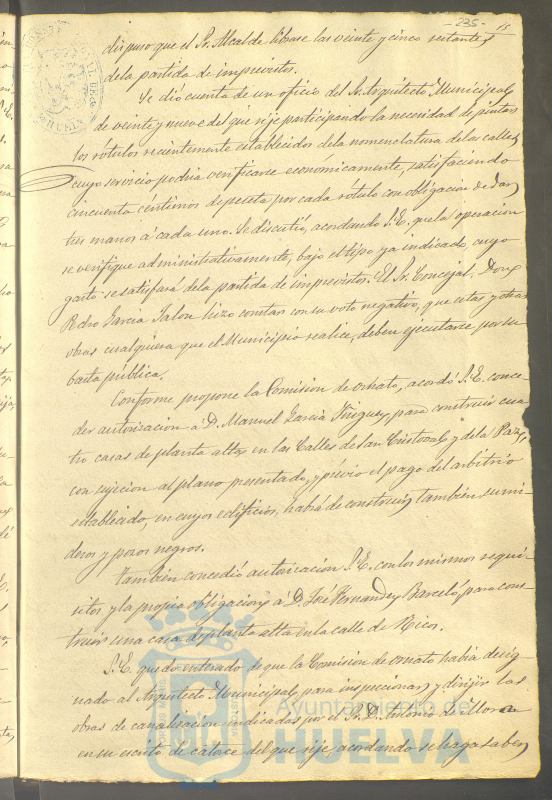 -225- 15
dispuso que el Sr. Alcalde librase las veinte y cinco restantes
de la partida de imprevistos.
Se dió cuenta de un oficio del Sr. Arquitecto Municipal,
de veinte y nueve del que rije participando la necesidad de pintar
los rótulos recientemente establecidos de la nomenclatura de las calles,
cuyo servicio podria verificarse económicamente, satisfaciendo
cincuenta centimos de peseta por cada rótulo con obligación de dar
tres manos á cada uno. Se discutió, acordando S.E. que la operacion
se verifique administrativamente, bajo el tipo ya indicado cuyo
gasto se satisfará de la partida de imprevistos. El Sr. Concejal, Don
Pedro Garcia Jalon hizo constar con su voto negativo, que estas y otras
obras cualquiera que el Municipio realice, deben ejecutarse por su-
basta pública.
Conforme propone la Comision de ornato, acordó S.E. conce-
der autorizacion á D. Manuel Garcia Iñiguez, para construir cua-
tro casas de planta alta en las Calles de San Cristobal y de la Paz,
con sujecion al plano presentado, y previo el pago del arbitrio
establecido, en cuyos edificios, habrá de construir tambien sumi-
deros y pozos negros.
Tambien concedió autorizacion S.E. con los mismos requi-
sitos y la propia obligacion, á D. José Fernandez Barceló, para cons-
truir una casa de planta alta en la calle de Ricos.
S.E. quedó enterado de que la Comision de ornato habia desig-
nado al Arquitecto Municipal, para inspeccionar y dirijir las
obras de canalizacion indicadas por el Sr. D. Antonio de Mora
en su escrito de catorce del que rije, acordando se haga saber
Ayuntamiento de
HUELVA